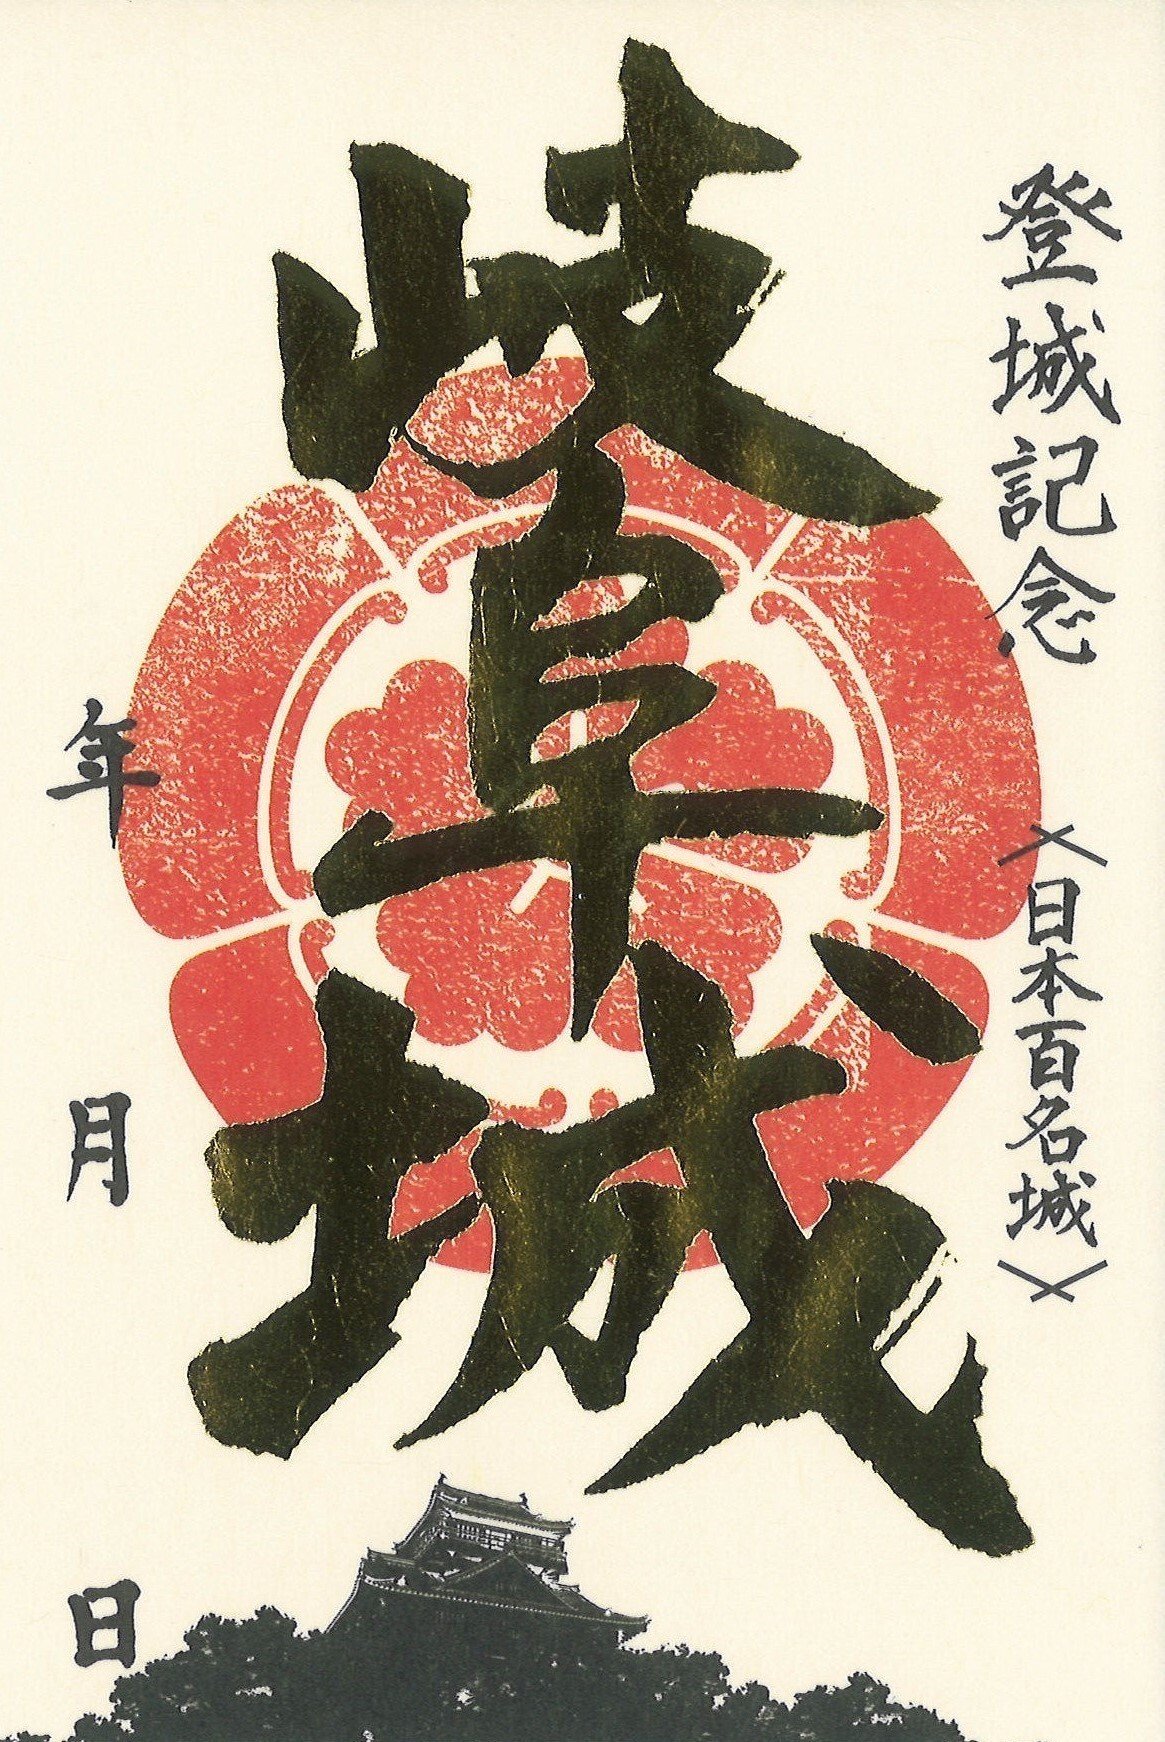 登城記念 〈日本百名城〉
岐阜城
年 月 日